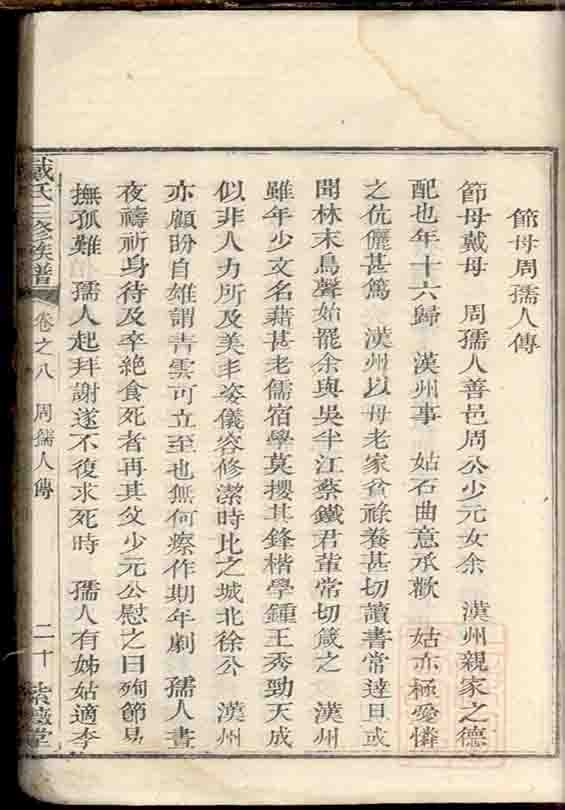 節母周孺人傳
節母戴母　周孺人善邑周公少元女余　漢州親家之德
配也年十六歸　漢州事　姑石曲意承歡　姑亦極愛憐
之伉儷甚篤　漢州以母老家貧祿養甚切讀書常達旦或
聞林末鳥聲始罷余與吳半江蔡鐵君輩常切箴之　漢州
雖年少文名藉甚老儒宿學莫攖其鋒楷學鍾王秀勁天成
似非人力所及美丰姿儀容修潔時比之城北徐公　漢州
亦顧盼自雄謂青雲可立至也無何瘵作期年劇　孺人晝
夜禱祈身待及卒絶食死者再其父少元公慰之曰殉節易
撫孤難　孺人起拜謝遂不復求死時　孺人有姊姑適李
戴氏三修族譜　卷之八　周孺人傳　二十　紫薇堂